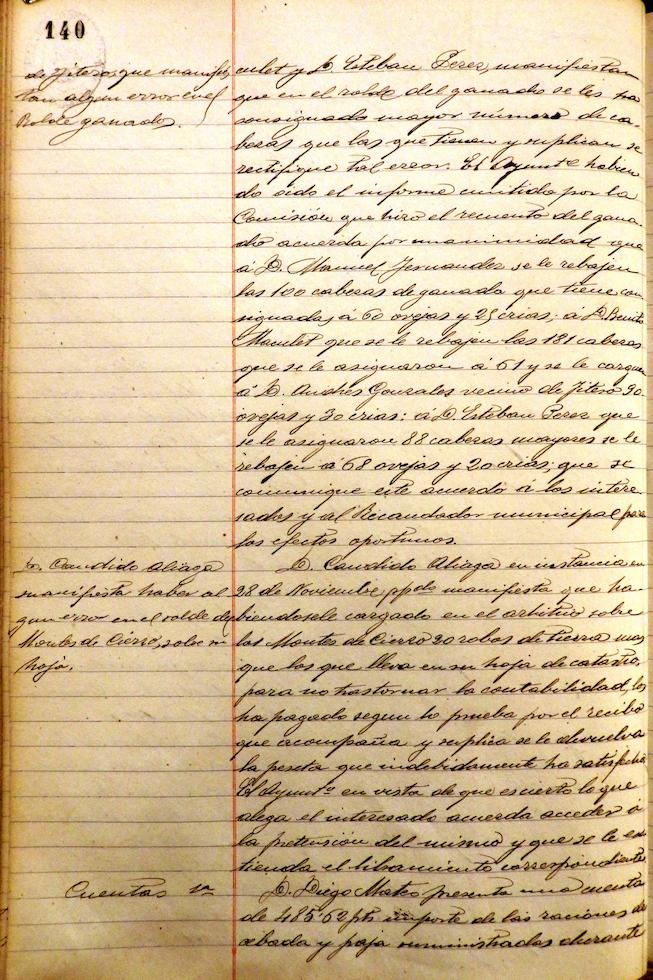 140
de Fitero que manifies
tan algun error en el
Rolde ganados.
culet y D. Esteban Perez, manifiestan
que en el rolde del ganado se les ha
consignado mayor número de ca-
bezas que las que tienen y suplican se
rectifique tal error. El Ayunt.º habien
do oido el informe emitido por la
Comisión que hizo el recuento del gana-
do acuerda por unanimidad que
á D. Manuel Fernandez se le rebajen
las 100 cabezas de ganado que tiene con
signadas, á 60 ovejas y 25 crias; á D. Benito
Maculet que se le rebajen las 181 cabezas
que se le asignaron á 61 y se le carguen
á D. Andrés Gonzales vecino de Fitero 90
ovejas y 30 crias: á D. Esteban Perez que
se le asignaron 88 cabezas mayores se le
rebajen á 68 ovejas y 20 crias; que se
comunique este acuerdo á los intere-
sados y al Recaudador municipal para
los efectos oportunos.
D. Candido Aliaga
manifiesta haber al
gun error en el rolde de
Montes de Cierzo, sobre su
hoja.
D. Candido Aliaga en instancia en
28 de Noviembre ppdo manifiesta que ha-
biendosele cargado en el arbitrio sobre
los Montes de Cierzo 20 robos de tierra mas
que los que lleva en su hoja de catastro,
para no trastornar la contabilidad, los
ha pagado segun lo prueba por el recibo
que acompaña y suplica se le devuelva
la peseta que indebidamente ha satisfecho
El Ayunt.º en vista de que es cierto lo que
alega el interesado acuerda acceder á
la pretensión del mismo y que se le es
tienda el libramiento correspondiente
Cuentas 1ª
D. Diego Mateo presenta una cuenta
de 485'62 pts importe de las raciones de
cebada y paja suministradas durante